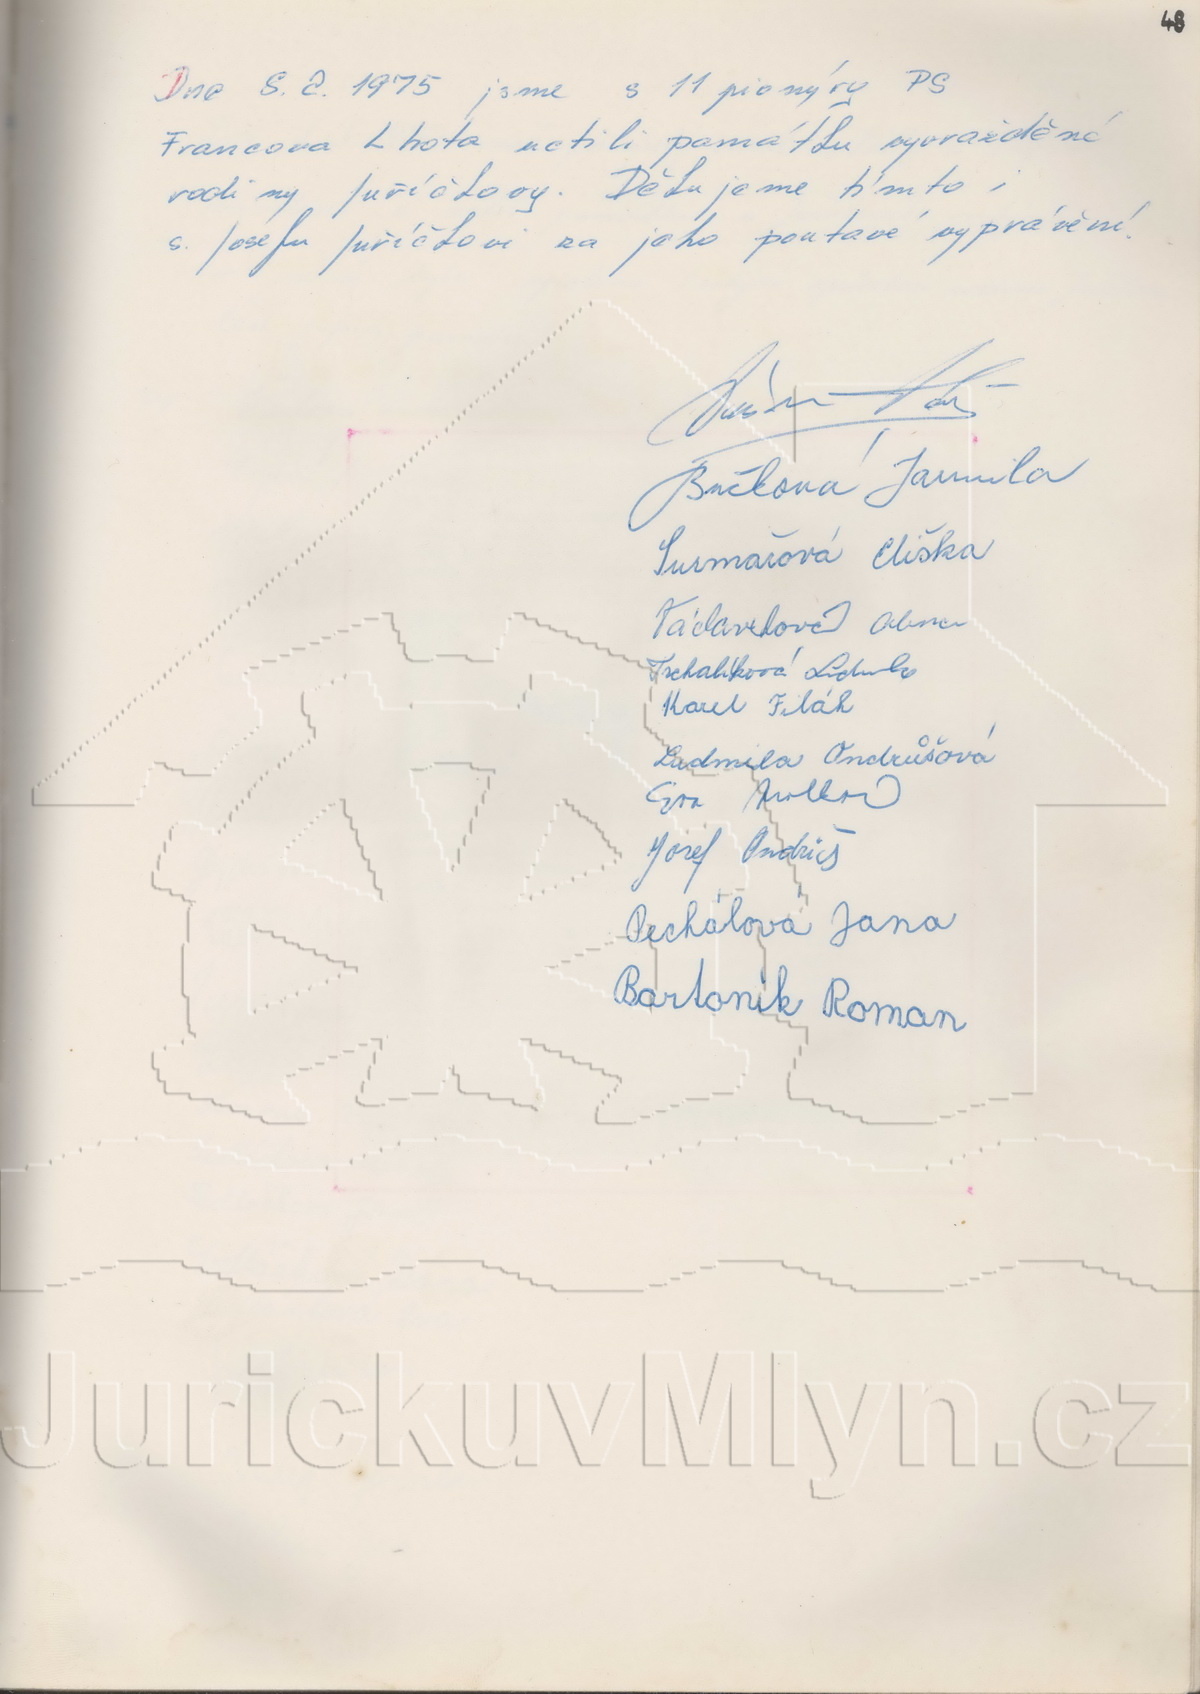 48
Dne 8. 2. 1975 jsme s 11 pionýry PS
Francova Lhota uctili památku vyvražděné
rodiny Juříčkovy. Děkujeme tímto i
s. Josefu Juříčkovi za jeho poutavé vyprávění.
Bučková Jarmila
Surmařová Eliška
Václavková Alena
Karel Filák
Ludmila Ondrůšová
Eva
Josef Ondriš
Pechálová Jana
Bartoník Roman
JurickuvMlyn.cz